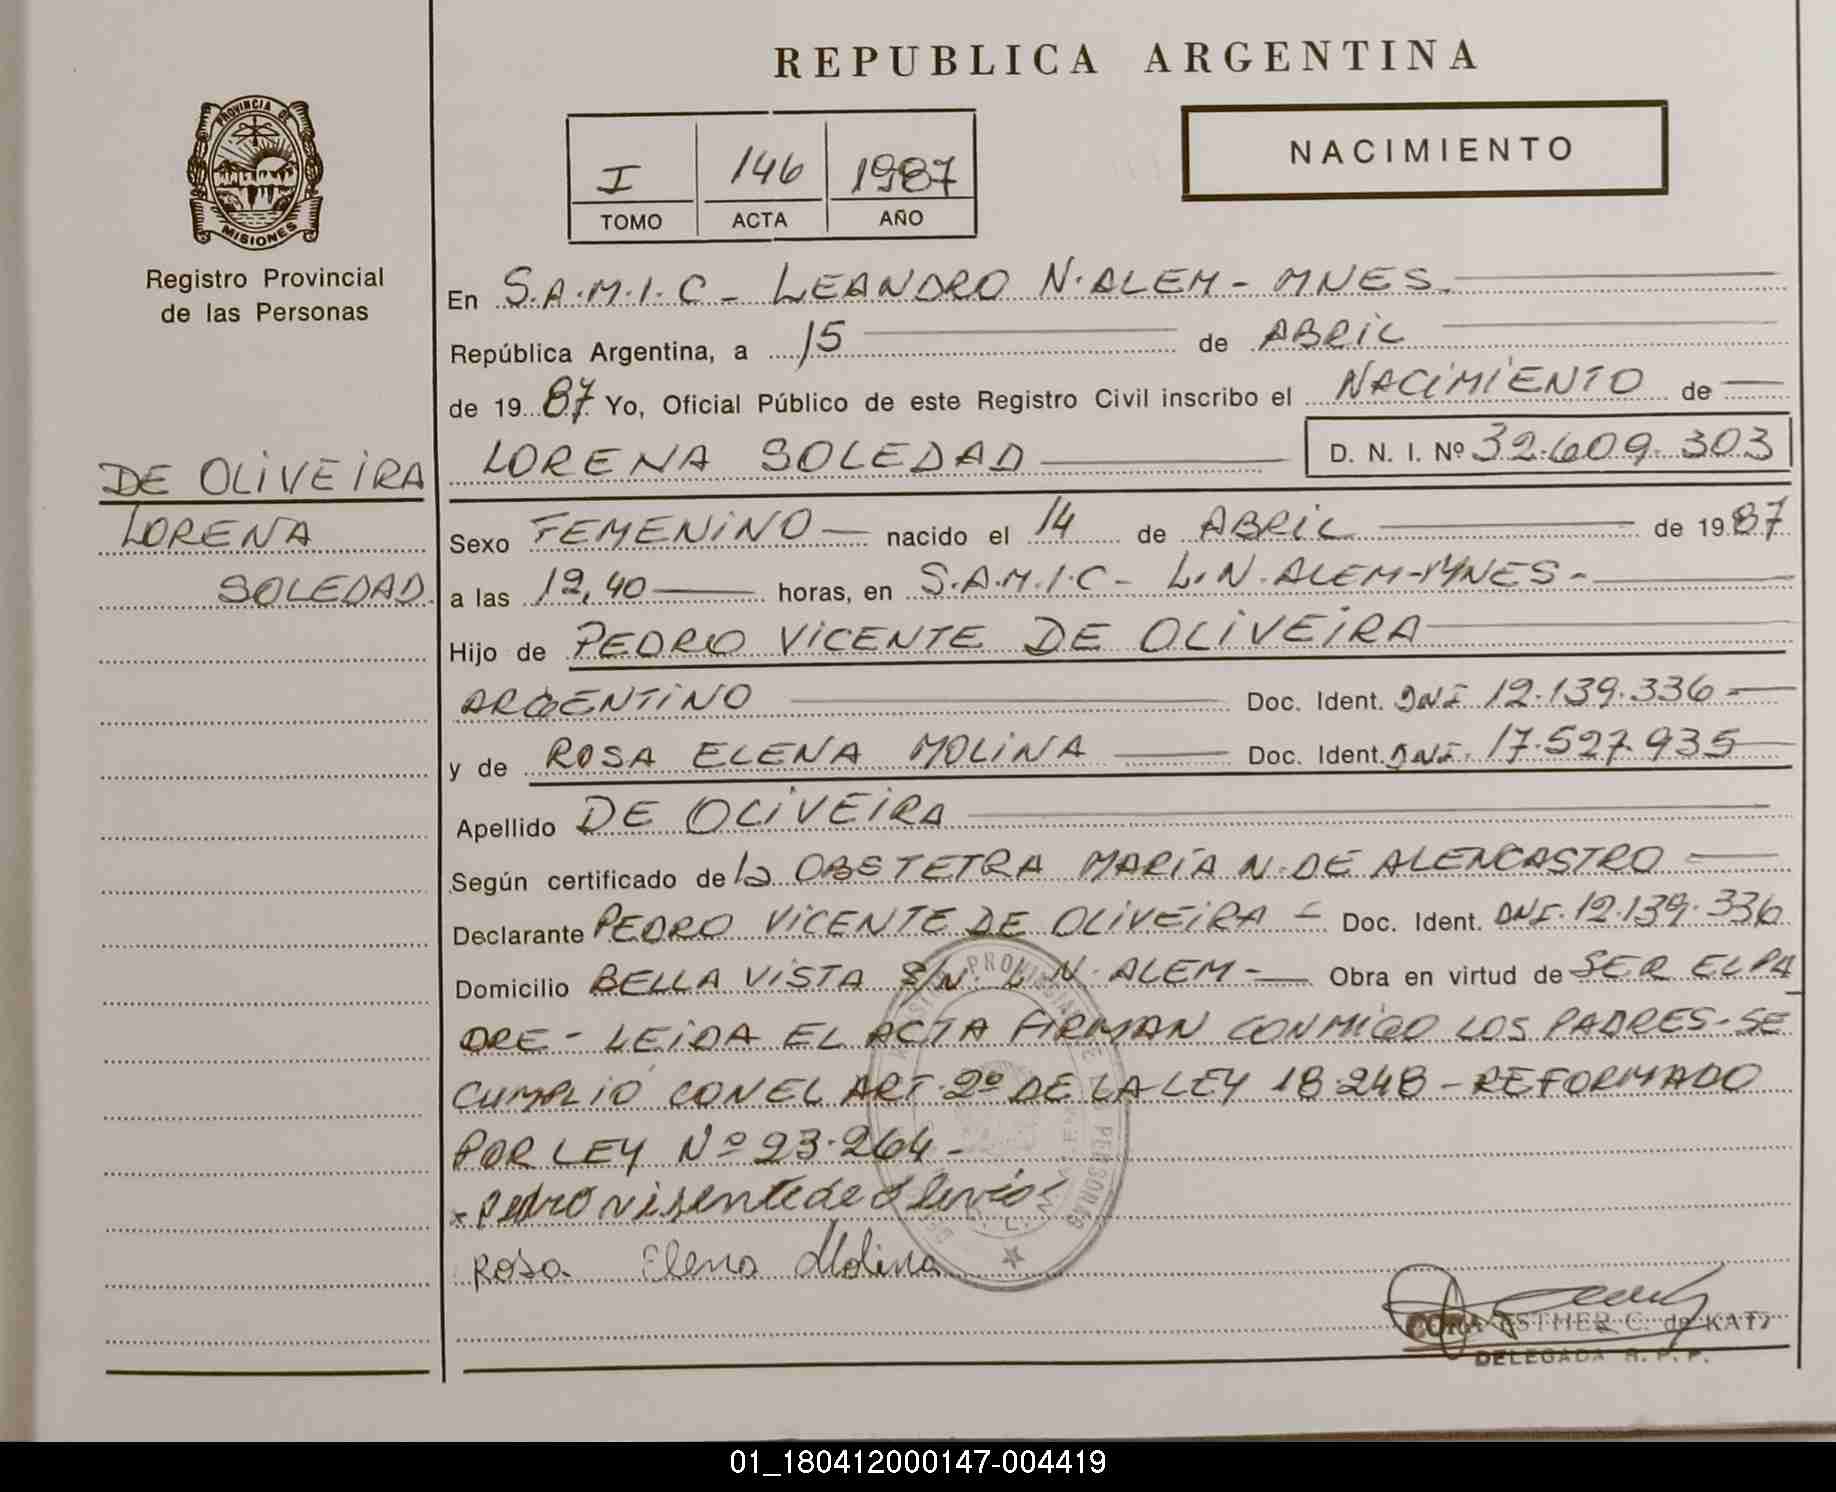 REPUBLICA ARGENTINA
PROVINCIA DE
MISIONES
Registro Provincial
de las Personas
I 146 1987
TOMO ACTA AÑO
NACIMIENTO
En S.A.M.I.C - LEANDRO N. ALEM - MNES.
República Argentina, a 15 de ABRIL
de 1987 Yo, Oficial Público de este Registro Civil inscribo el NACIMIENTO de
LORENA SOLEDAD D. N. I. Nº 32.609.303
DE OLIVEIRA
LORENA
SOLEDAD
Sexo FEMENINO nacido el 14 de ABRIL de 1987
a las 12,40 horas, en S.A.M.I.C - L.N. ALEM - MNES -
Hijo de PEDRO VICENTE DE OLIVEIRA
ARGENTINO Doc. Ident. DNI 12.139.336
y de ROSA ELENA MOLINA Doc. Ident. DNI. 17.527.935
Apellido DE OLIVEIRA
Según certificado de la OBSTETRA MARÍA N. DE ALENCASTRO
Declarante PEDRO VICENTE DE OLIVEIRA - Doc. Ident. DNI. 12.139.336
Domicilio BELLA VISTA S/N. L. N. ALEM - Obra en virtud de SER EL PA
DRE - LEIDA EL ACTA FIRMAN CONMIGO LOS PADRES - SE
CUMPLIO CON EL ART. 2º DE LA LEY 18.248 - REFORMADO
POR LEY Nº 23.264 -
Pedro visente de
Rosa Elena Molina
CORA ESTHER C. de KATZ
DELEGADA R. P. P.
01_180412000147-004419